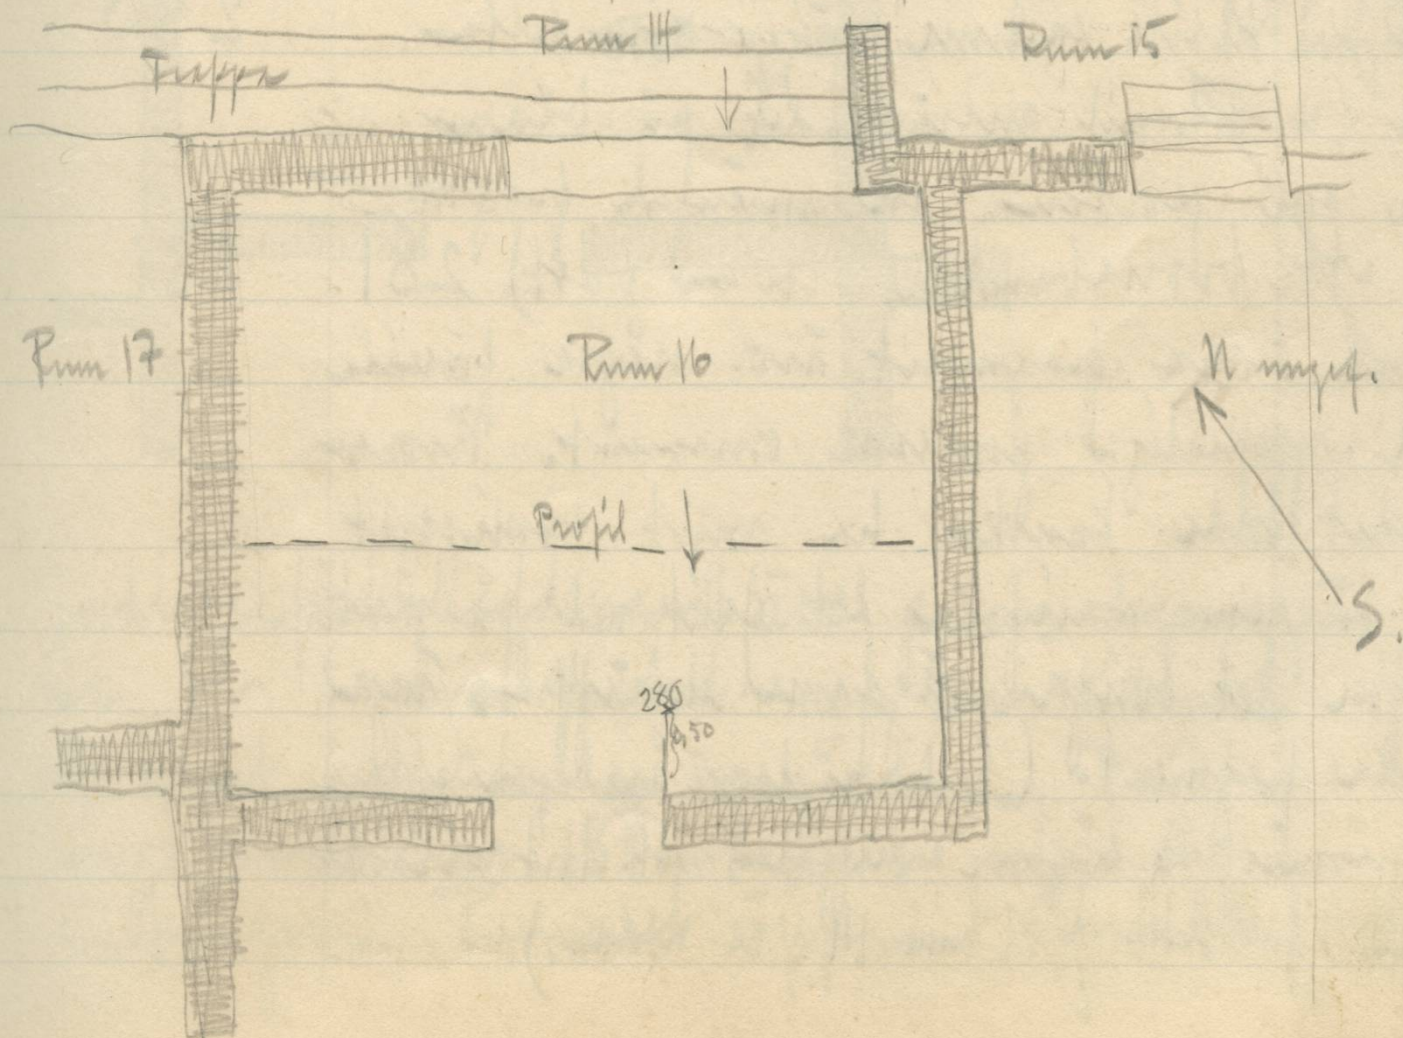 Rum 14
Rum 15
Trappa
Rum 17
Rum 16
N ungef.
Profil
S.
280
0,50